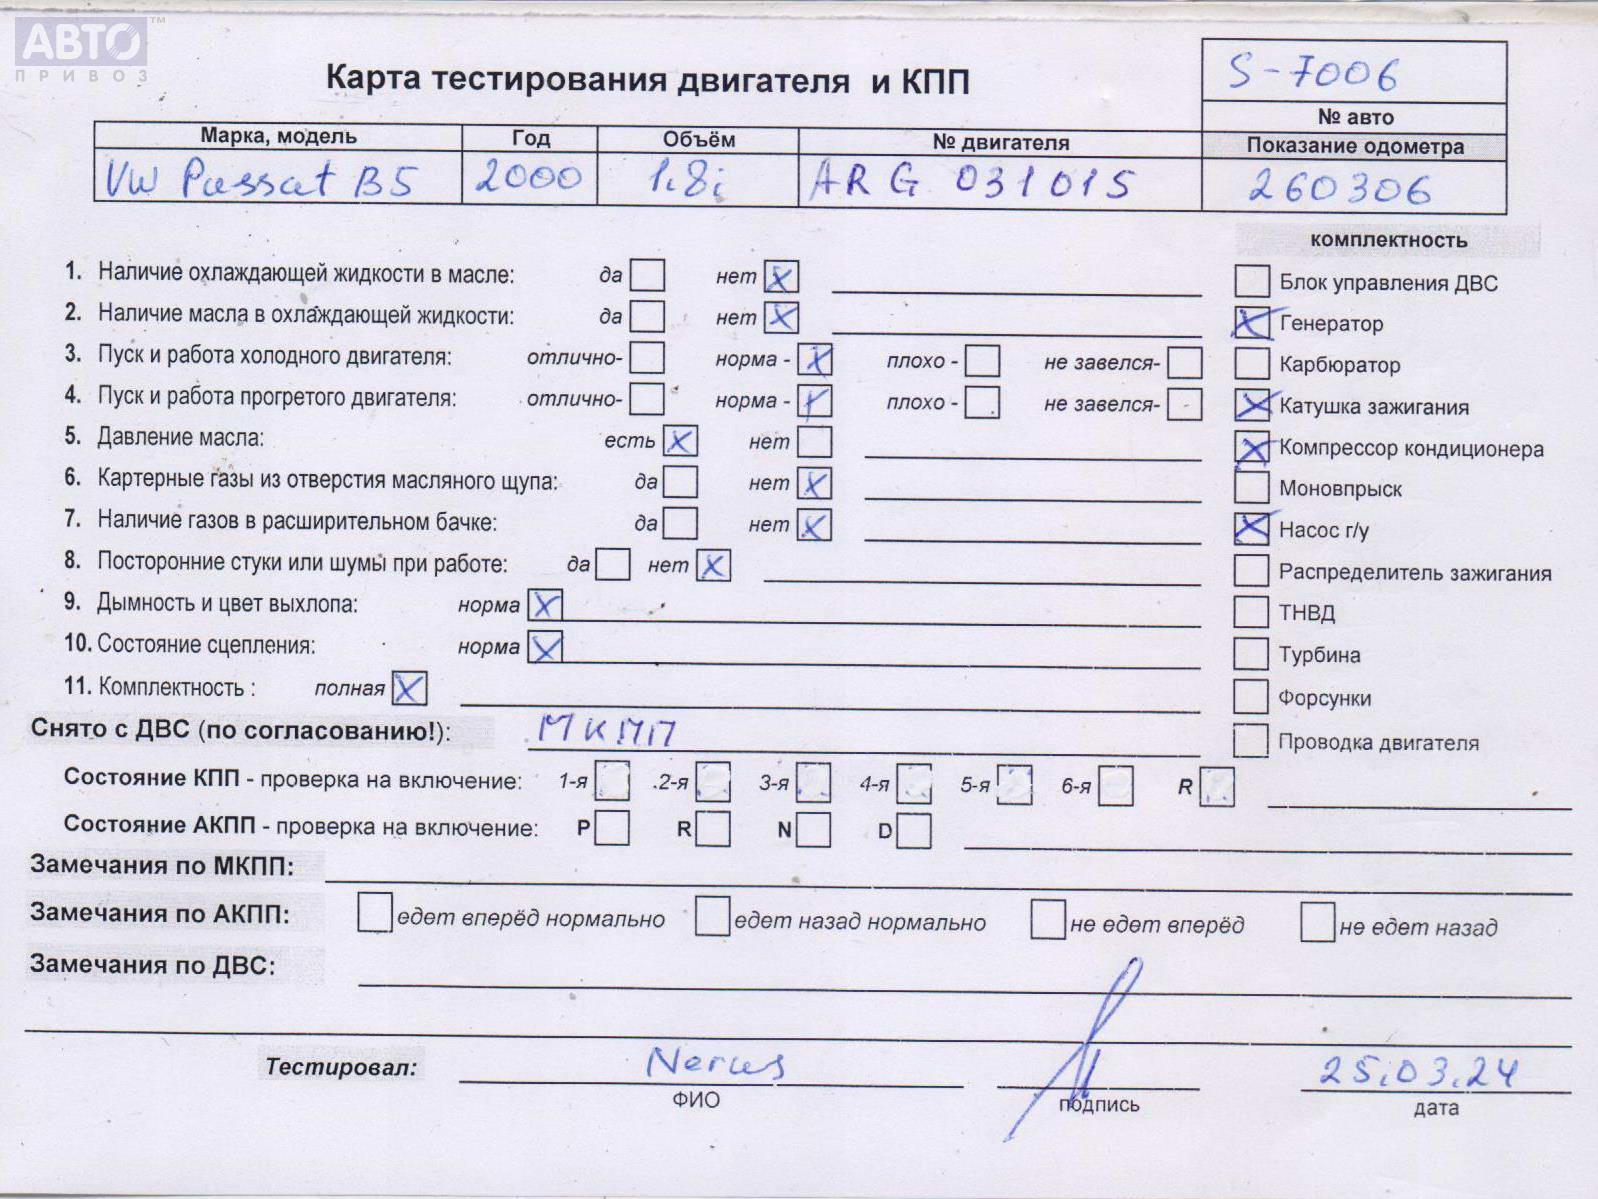 АВТО™
ПРИВОЗ
Карта тестирования двигателя и КПП
S-7006
№ авто
Марка, модель Год Объём № двигателя Показание одометра
VW Passat B5 2000 1.8i ARG 031015 260306
комплектность
1. Наличие охлаждающей жидкости в масле: да нет X
Блок управления ДВС
2. Наличие масла в охлаждающей жидкости: да нет X
X Генератор
3. Пуск и работа холодного двигателя: отлично- норма - X плохо - не завелся-
Карбюратор
4. Пуск и работа прогретого двигателя: отлично- норма - X плохо - не завелся-
X Катушка зажигания
5. Давление масла: есть X нет
X Компрессор кондиционера
6. Картерные газы из отверстия масляного щупа: да нет X
Моновпрыск
7. Наличие газов в расширительном бачке: да нет X
X Насос г/у
8. Посторонние стуки или шумы при работе: да нет X
Распределитель зажигания
9. Дымность и цвет выхлопа: норма X
ТНВД
10. Состояние сцепления: норма X
Турбина
11. Комплектность : полная X
Форсунки
Снято с ДВС (по согласованию!): МКПП
Проводка двигателя
Состояние КПП - проверка на включение: 1-я 2-я 3-я 4-я 5-я 6-я R
Состояние АКПП - проверка на включение: P R N D
Замечания по МКПП:
Замечания по АКПП: едет вперёд нормально едет назад нормально не едет вперёд не едет назад
Замечания по ДВС:
Тестировал: 25.03.24
ФИО подпись дата